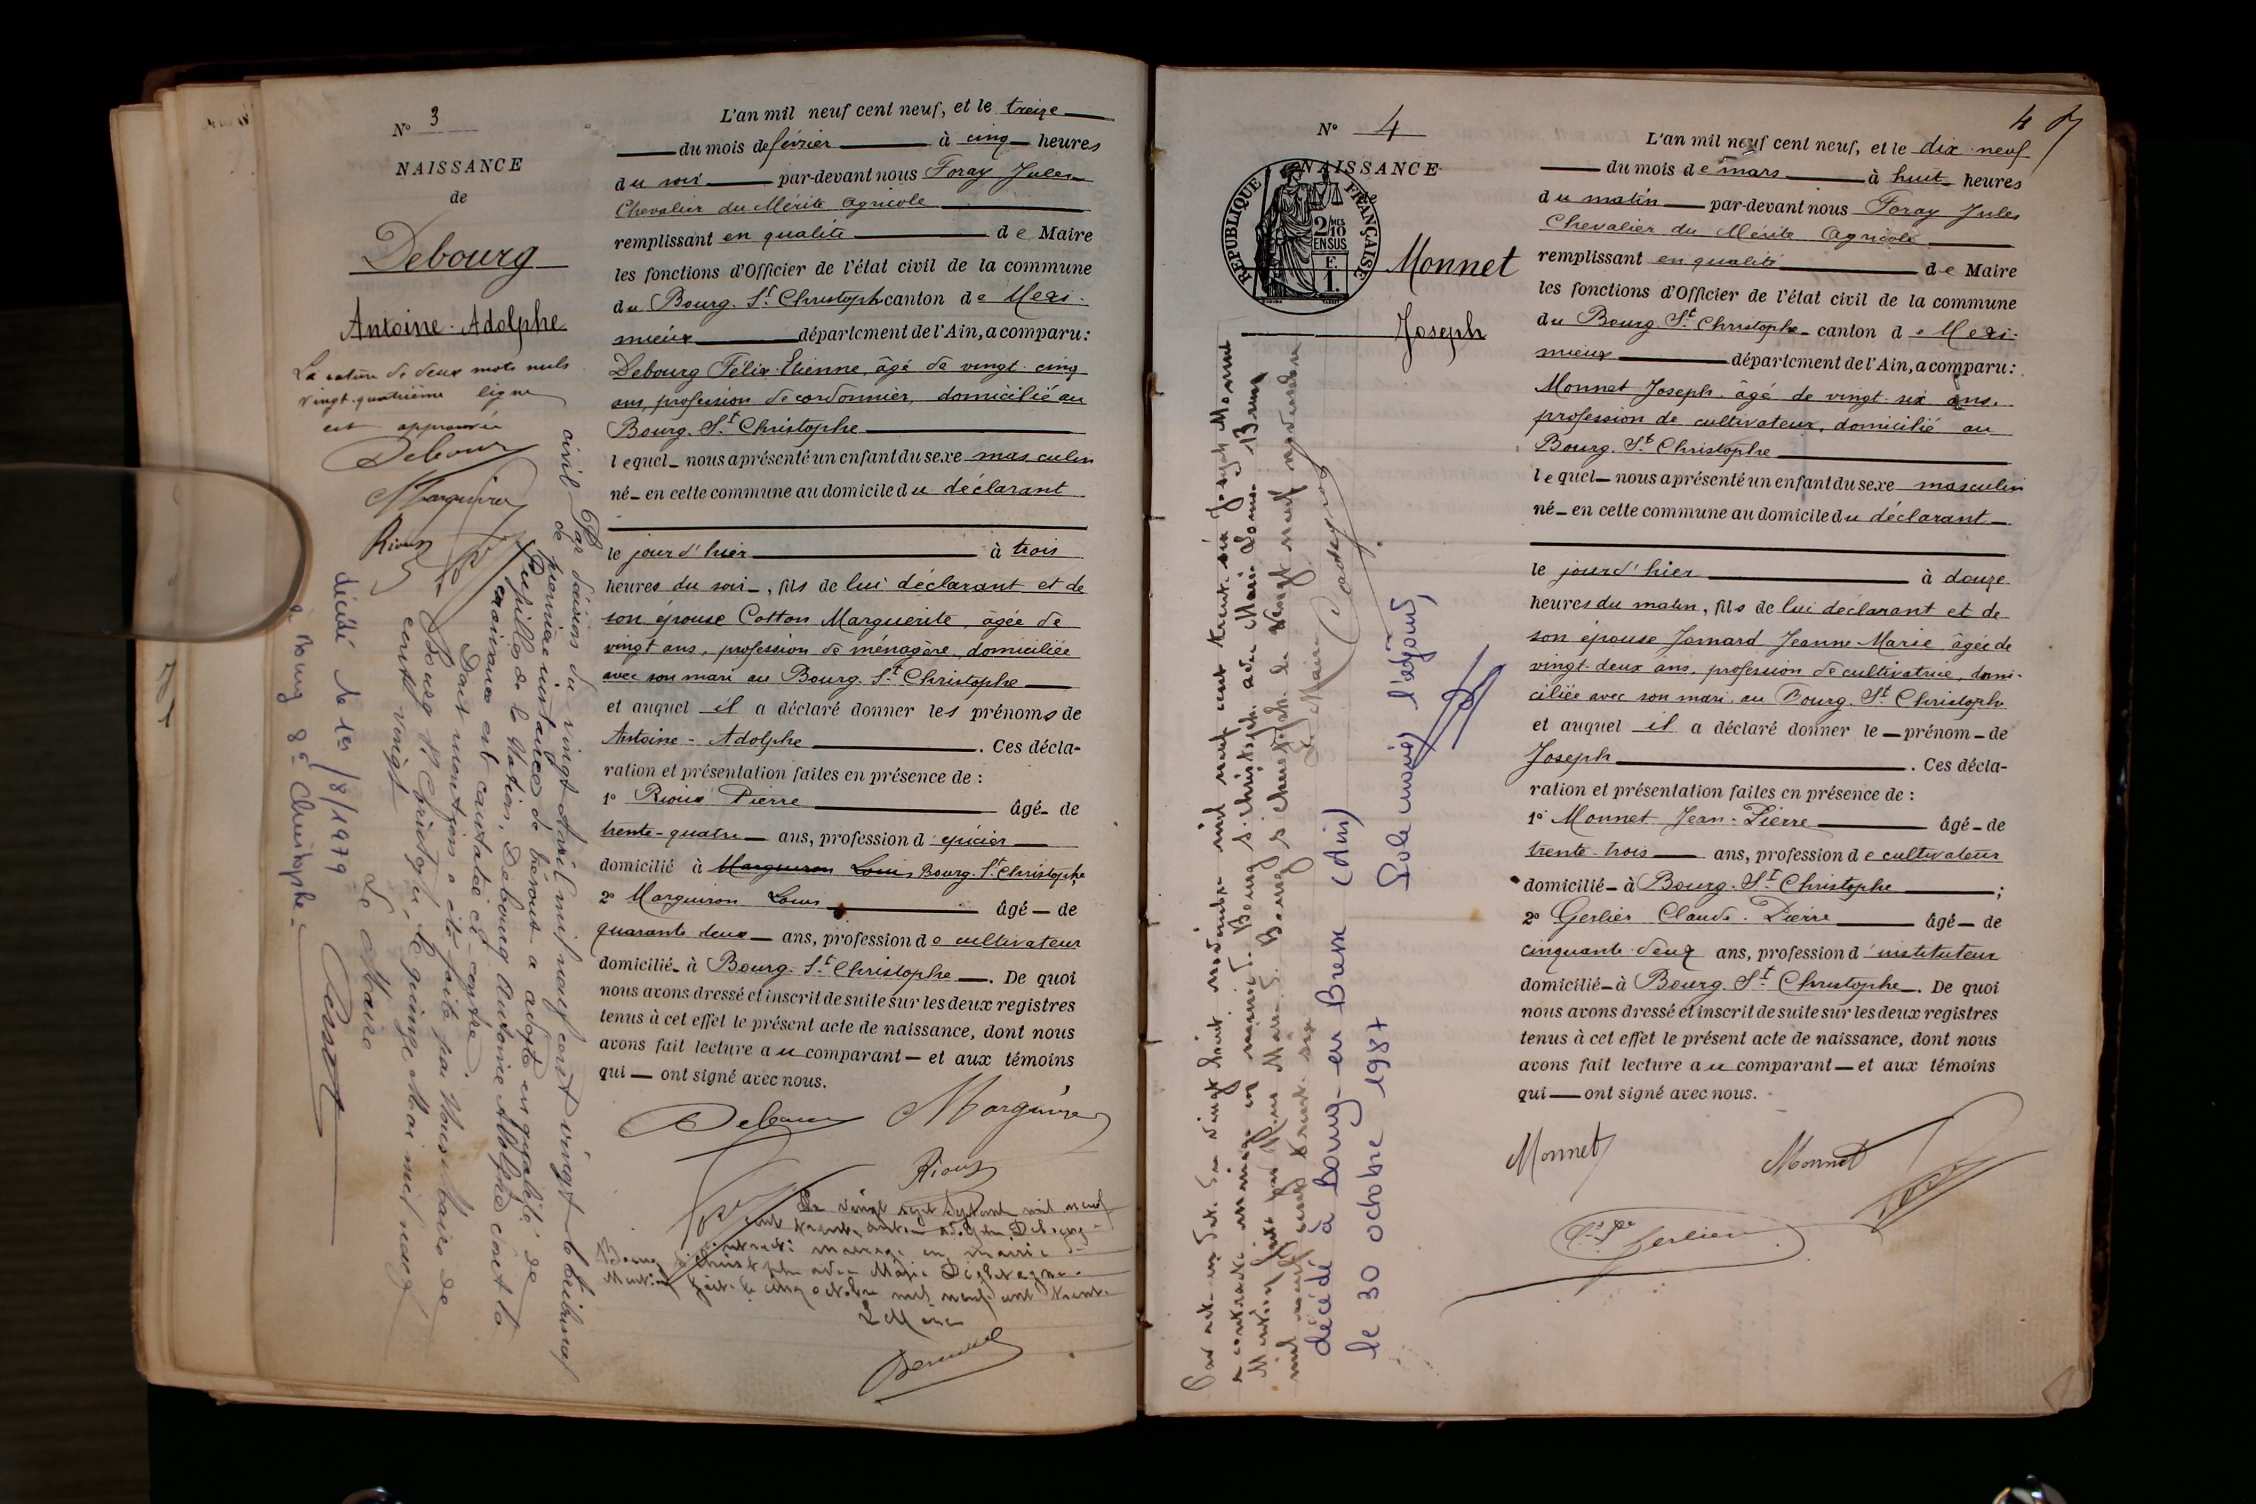 N° 3
NAISSANCE
de
Debourg
Antoine-Adolphe
La rature de deux mots nuls
vingt-quatrième ligne
est approuvée
Debourg
Marguiron
Rioux
L'an mil neuf cent neuf, et le treize
du mois de février à cinq heures
du soir par-devant nous Foray Jules
Chevalier du Mérite Agricole
remplissant en qualité de Maire
les fonctions d'Officier de l'état civil de la commune
du Bourg-St Christophe canton de Mexi-
mieux département de l'Ain, a comparu:
Debourg Félix-Etienne, âgé de vingt-cinq
ans, profession de cordonnier, domicilié au
Bourg-St Christophe
lequel nous a présenté un enfant du sexe masculin
né en cette commune au domicile du déclarant
le jour d'hier à trois
heures du soir, fils de lui déclarant et de
son épouse Cotton Marguerite, âgée de
vingt ans, profession de ménagère, domiciliée
avec son mari au Bourg-St Christophe
et auquel il a déclaré donner les prénoms de
Antoine-Adolphe. Ces décla-
ration et présentation faites en présence de :
1° Rioux Pierre âgé de
trente-quatre ans, profession d'épicier
domicilié à Marguiron Louis Bourg-St Christophe,
2° Marguiron Louis âgé de
quarante deux ans, profession de cultivateur
domicilié à Bourg-St Christophe. De quoi
nous avons dressé et inscrit de suite sur les deux registres
tenus à cet effet le présent acte de naissance, dont nous
avons fait lecture au comparant et aux témoins
qui ont signé avec nous.
Debourg Marguiron
Rioux
Le vingt sept septembre mil neuf
cent trente, Antoine Adolphe Debourg
a contracté mariage en mairie de
Bourg St Christophe avec Marie
Mention faite le cinq octobre mil neuf cent trente
Le Maire
Par décision du vingt Avril mil neuf cent vingt le tribunal civil
de première instance de Trévoux a adopté en qualité de
Pupille de la Nation, Debourg Antoine Adolphe dont la
naissance est constatée ci-contre.
Dont mention a été faite par Nous Maire de
Bourg St Christophe, le quinze Mai mil neuf
cent vingt
Le Maire
décédé le 19/8/1979
à Bourg St Christophe
N° 4
NAISSANCE
de
RÉPUBLIQUE FRANÇAISE
2/10 MES
EN SUS
F.
1.
Monnet
Joseph
Par acte en date du vingt huit novembre mil neuf cent trente six Joseph Monnet
a contracté mariage en mairie de Bourg St Christophe avec Marie Louise Brun
Mention faite par Nous Maire de Bourg St Christophe le vingt neuf novembre
mil neuf cent trente six
Le Maire
décédé à Bourg-en-Bresse (Ain)
le 30 octobre 1987
l'adjoint,
4
L'an mil neuf cent neuf, et le dix-neuf
du mois de mars à huit heures
du matin par-devant nous Foray Jules
Chevalier du Mérite Agricole
remplissant en qualité de Maire
les fonctions d'Officier de l'état civil de la commune
du Bourg St Christophe canton de Mexi-
mieux département de l'Ain, a comparu:
Monnet Joseph, âgé de vingt-six ans,
profession de cultivateur, domicilié au
Bourg-St Christophe
lequel nous a présenté un enfant du sexe masculin
né en cette commune au domicile du déclarant
le jour d'hier à douze
heures du matin, fils de lui déclarant et de
son épouse Jomard Jeanne-Marie âgée de
vingt-deux ans, profession de cultivatrice, domi-
ciliée avec son mari, au Bourg-St Christophe
et auquel il a déclaré donner le prénom de
Joseph. Ces décla-
ration et présentation faites en présence de :
1° Monnet Jean-Pierre âgé de
trente-trois ans, profession de cultivateur
domicilié à Bourg-St Christophe ;
2° Gerlier Claude-Pierre âgé de
cinquante-deux ans, profession d'instituteur
domicilié à Bourg-St Christophe. De quoi
nous avons dressé et inscrit de suite sur les deux registres
tenus à cet effet le présent acte de naissance, dont nous
avons fait lecture au comparant et aux témoins
qui ont signé avec nous.
Monnet Monnet
Gerlier